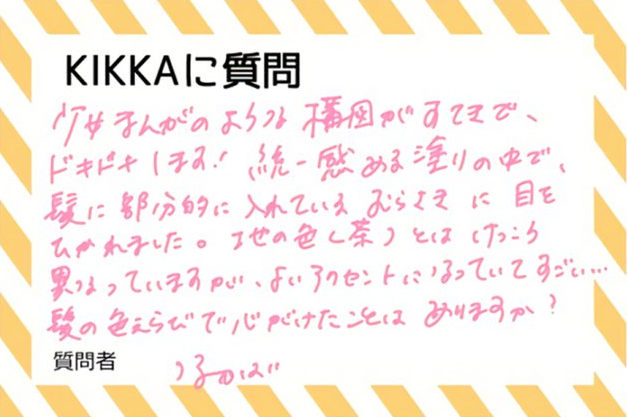 KIKKAに質問
少女まんがのような構図がすてきで、
ドキドキします! 統一感ある塗りの中で、
髪に部分的に入れているむらさきに目を
ひかれました。地の色(茶)とはけっこう
異なっていますが、よいアクセントになっていてすごい…
髪の色えらびで心がけたことはありますか?
質問者